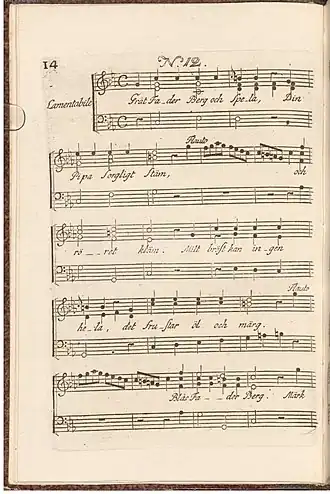 14
Nº. 12.
Lamentabile
Gråt Fa_der Berg och Spe_la, Din
Flauto
Pipa sorgligt Stäm, och
rö__ret kläm. Mitt bröst kan in_gen
Flauto
he_la, det frustar öl och märg.
Blås Fa__der Berg. Märk